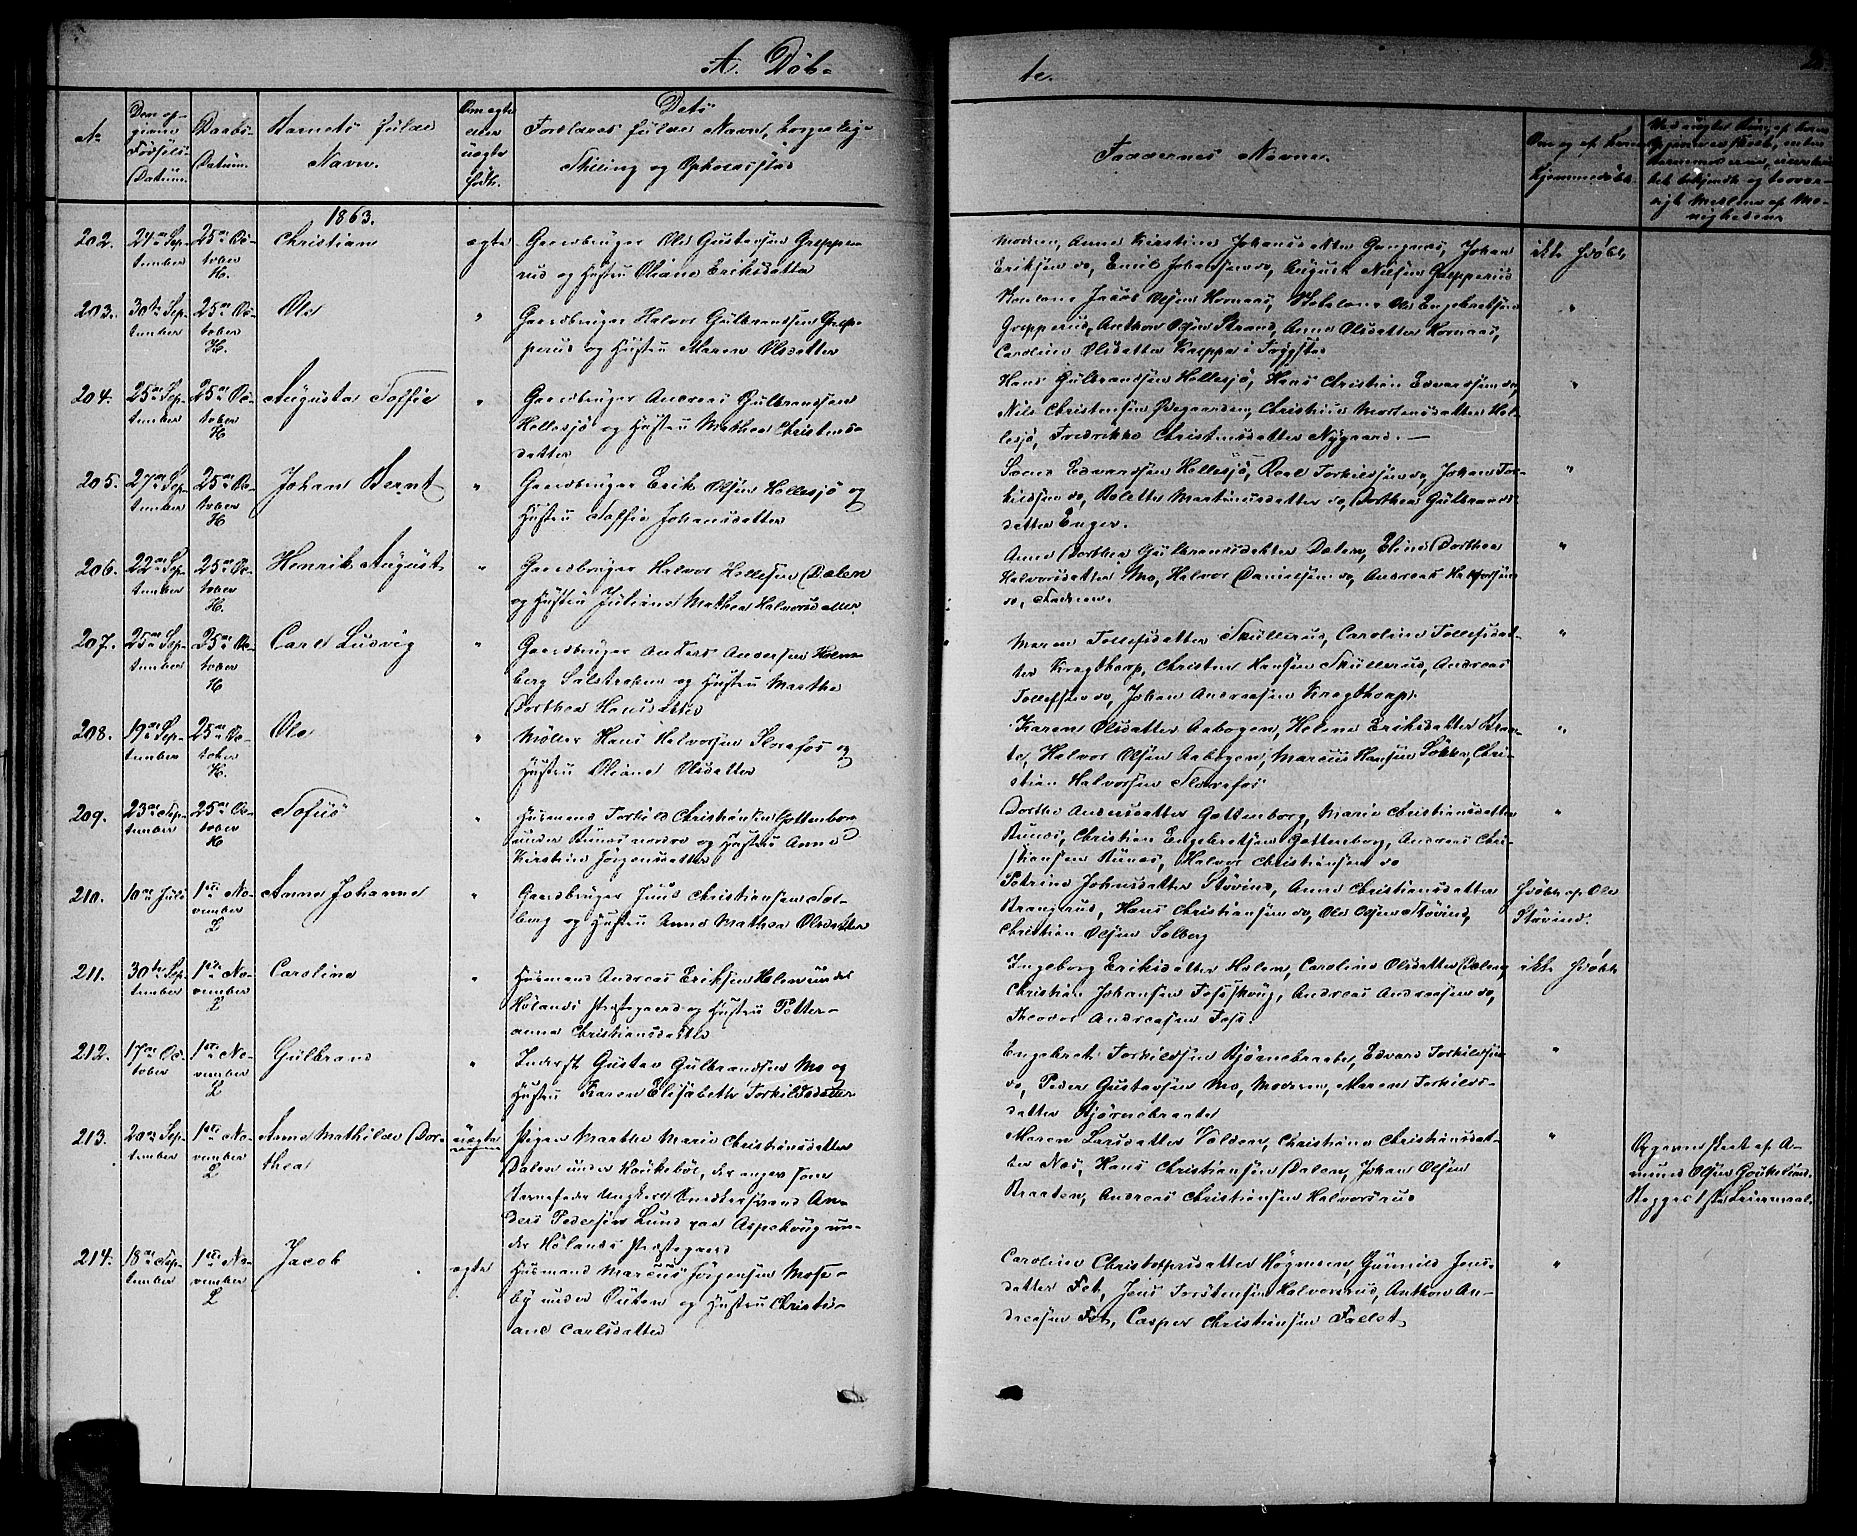 A. Døb-
te.
№
Den op-
givne
Fødsels-
Datum.
Daabs-
Datum.
Barnets fulde
Navn.
Om ægte
eller
uægte
født.
Dets
Forældres fulde Navn, borgerlige
Stilling og Opholdssted
Faddernes Navne.
Om og af hvem
hjemmedøbt.
1863.
202.
24de Sep-
tember
25de Oc-
tober
H.
Christian
ægte
Gaardbruger Ole Gustavsen Greppe-
rud og Hustru Oliane Eriksdatter
Moderen, Anne Kirstine Johansdatter Gangnæs, Johan
Eriksen do, Emil Johansen do, August Nilsen Grepperud
ikke hjdøbt
203.
30te Sep-
tember
25de Oc-
tober
H.
Ole
"
Gaardbruger Halvor Gulbrandsen Grep-
perud og Hustru Maren Olsdatter
Jacob Olsen Kornæs, Ole Engebretsen
Grepperud, Anthon Olsen Strand, Anne Olsdatter Kornæs,
Caroline Olsdatter Kreppe i Trygstad
"
204.
25de Sep-
tember
25de Oc-
tober
H
Augusta Soffie
"
Gaardbruger Andreas Gulbrandsen
Hellesjø og Hustru Mathea Christens-
datter
Hans Gulbrandsen Hellesjø, Hans Christian Edvardsen do,
Nils Christensen Ødegaarden, Christine Mortensdatter Hel-
lesjø, Fredrikke Christensdatter Nygaard. —
"
205.
27de Sep-
tember
25de Oc-
tober
H
Johan Bernt
"
Gaardbruger Erik Olsen Hellesjø og
Hustru Soffie Johansdatter
Edvardsen Hellesjø, Torkildsen do, Johan Tor-
kildsen do, Bolette Martinusdatter do, Dorthea Gulbrands-
datter Enger.
"
206.
22de Sep-
tember
25de Oc-
tober
H.
Henrik August
"
Gaardbruger Halvor Hellesen Dalen
og Hustru Juliane Mathea Halvorsdatter
Anne Dorthea Gulbrandsdatter Dalen, Eline Dorthea
Halvorsdatter Mo, Halvor Danielsen do, Andreas Halvorsen
do, Faderen.
"
207.
25de Sep-
tember
25de Oc-
tober
H
Carl Ludvig
"
Gaardbruger Anders Andersen Holm-
berg og Hustru Marthe
Dorthea Hansdatter
Maren Tollefsdatter Skullerud, Caroline Tollefsdat-
ter Kragthorp, Christen Hansen Skullerud, Andreas
Tollefsen do, Johan Andreasen Kragthorp.
"
208.
19de Sep-
tember
25de Oc-
tober
H.
Ole
"
Møller Hans Halvorsen Storefos og
Hustru Oliane Olsdatter
Karen Olsdatter Aabogen, Helene Eriksdatter Braa-
te, Halvor Olsen Aabogen, Marcus Hansen Chri-
stian Halvorsen Storefos
"
209.
23de Sep-
tember
25de Oc-
tober
H
Sofus
"
Husmand Torkild Christiansen Gottenborg
under Bunæs nordre og Hustru Anne
Kirstine Jørgensdatter
Dorthe Andersdatter Gottenborg, Marie Christiansdatter
Bunæs, Christian Engebretsen Gottenborg, Andreas Chri-
stiansen Bunæs, Halvor Christiansen do
"
210.
10de Juli
1ste No-
vember
L
Anne Johanne
"
Gaardbruger Juul Christiansen Sol-
berg og Hustru Anne Mathea Olsdatter
Petrine Johnsdatter Støvind, Anne Christiansdatter
Brangerud, Hans Christiansen do, Ole Olsen Støvind,
Christian Olsen Solberg
hjdøbt af Ole
Støvind.
211.
30te Sep-
tember
1ste No-
vember
L
Caroline
"
Husmand Andreas Eriksen Holen under
Hølands Præstegaard og Hustru Petter-
anne Christiansdatter
Ingeborg Eriksdatter Holen, Caroline Olsdatter Dalen,
Christian Johansen Fosskoug, Andreas Andreasen do,
Theodor Andreasen Foss.
ikke hjdøbt
212.
17de Oc-
tober
1ste No-
vember
L
Gulbrand
"
Inderst Gustav Gulbrandsen Mo og
Hustru Karen Elisabeth Torkildsdatter
Engebret Torkildsen Bjørnebraate, Edvard Torkildsen
do, Peder Gustavsen Mo, Moderen, Maren Torkilds-
datter Bjørnebraate
"
213.
20de Sep-
tember
1ste No-
vember
L
Anne Mathilde Dor-
thea
uægte
Pigen Marthe Marie Christiansdatter
Dalen under der angav som
Barnefader Ungkarl Snedkersvend An-
ders Pedersen Lund paa Aspeskoug un-
der Hølands Præstegaard
Maren Larsdatter Christine Christiansdat-
ter Næs, Hans Christiansen Dalen, Johan Olsen
Braaten, Andreas Christiansen Halvorsrud
"
Opgivende skeet af A-
mund Olsen
Begges 1ste Leiermaal.
214.
18de Sep-
tember
1ste No-
vember
L
Jacob
ægte
Husmand Marcus Jørgensen Mose-
by under og Hustru Christi-
ane Carlsdatter
Caroline Christophersdatter Høgmoen, Gunnild Jens-
datter Fet, Jens Torstensen Halvorsrud, Anthon An-
dreasen Fet, Casper Christiansen Fallet
"